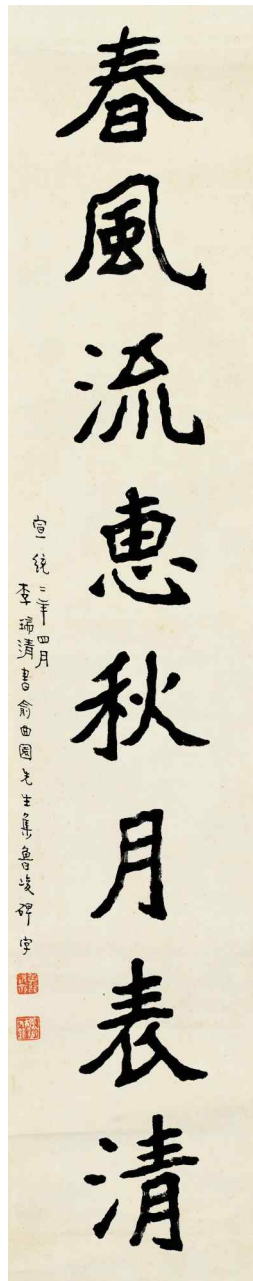 春風流惠秋月表清
宣統二年四月
李瑞清書俞曲園先生集魯峻碑字